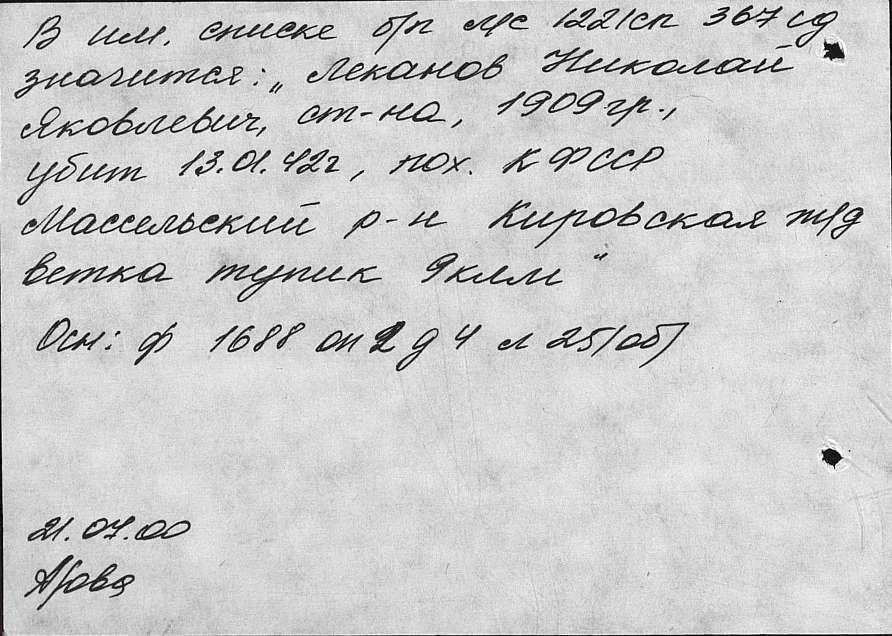 В им. списке б/п л/с 1221сп 367 сд
значится: „Леканов Николай
Яковлевич, ст-на, 1909гр.,
убит 13.01.42г, пох. КФССР
Массельский р-н Кировская ж/д
ветка тупик 9клм"
Осн: ф 1688 оп 2 д 4 л 25/об/
21.07.00